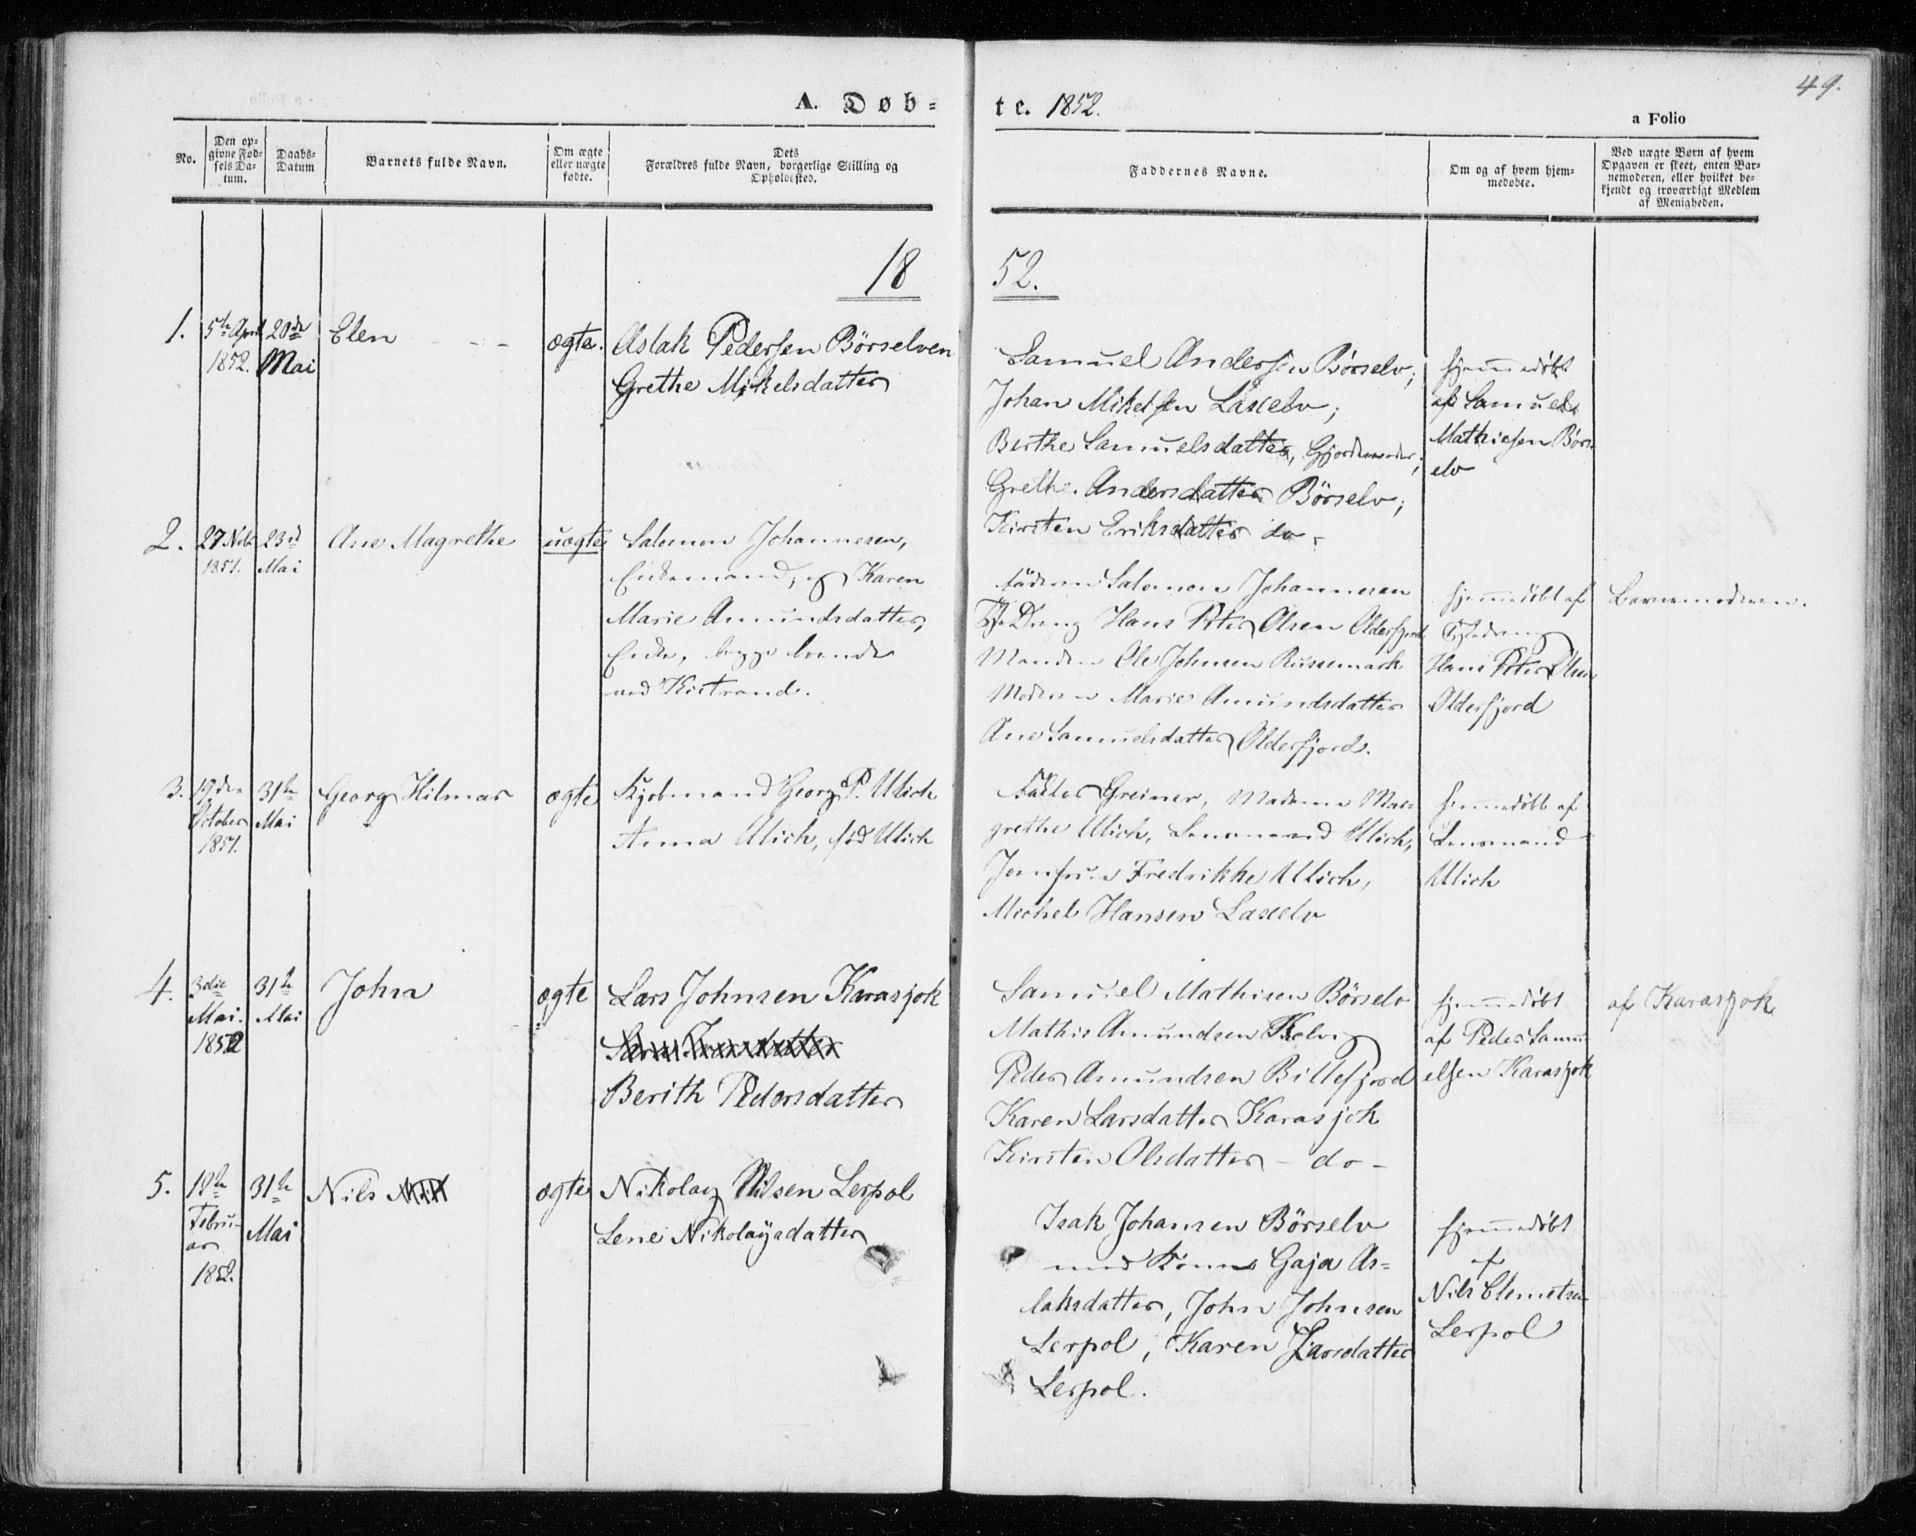 49.
A. Døb-
te. 1852.
a Folio
No.
Den op-
givne Fød-
sels Da-
tum.
Daabs-
Datum
Barnets fulde Navn.
Om ægte
eller uægte
fødte.
Dets
Forældres fulde Navn, borgerlige Stilling og
Opholdssted.
Faddernes Navne.
Om og af hvem hjem-
medøbte.
Ved uægte Børn af hvem
Opgaven er skeet, enten Bar-
nemoderen, eller hvilket be-
kjendt og troværdigt Medlem
af Menigheden.
18
52.
1.
5te April
1852.
20de
Mai
Elen
ægte.
Aslak Pedersen Børselven
Grethe Mikelsdatter
Samuel Andersen Børselv;
Johan Mikelsen Laxelv;
Berthe Samuelsdatter, Gjordemoder;
Grethe Andersdatter Börselv;
Kirsten Eriksdatter do -
hjemmedøbt
af Samuel
Mathiesen Børs-
elv
2.
27 Novb
1851.
23d
Mai
Ane Magrethe
uægte
Salomon Johannesen,
Enkemand, og Karen
Marie Amundsdatter,
Enke, begge boende
ved Kistrand.
Faderen Salomon Johannesen
Hans Peter Olsen Olderfjord
Manden Ole Johnsen Russemark
Moderen Marie Amundsdatter
Ane Samuelsdatter Olderfjord.
hjemmedøbt af
Hans Peter Olsen
Olderfjord
Barnemoderen.
3.
19de
October
1851.
31te
Mai
Georg Hilmar
ægte
Kjøbmand Georg P. Ulich
Anna Ulich, fød Ulich
Greiner, Madame Mar-
grethe Ulich, Lensmand Ulich,
Jomfrue Fredrikke Ulich,
Michel Hansen Laxelv
hjemmedøbt af
Lensmand
Ulich
4.
3die
Mai.
1852
31te
Mai
John
ægte
Lars Johnsen Karasjok
Berith Pedersdatter
Samuel Mathisen Børselv
Mathis Amundsen
Peder Amundsen Billefjord
Karen Larsdatter Karasjok
Kirsten Olsdatter - do -
hjemmedøbt
af Peder Samu
elsen Karasjok
af Karasjok
5.
18te
Febru-
ar
1852.
31te
Mai
Nils
ægte
Nikolay Nilsen Lerpol
Lene Nikolaysdatter
Isak Johansen Börselv
med Konne Gaja As-
laksdatter, John Johnsen
Lerpol, Karen Larsdatter
Lerpol.
hjemmedøbt
af
Nils Clemetsen
Lerpol